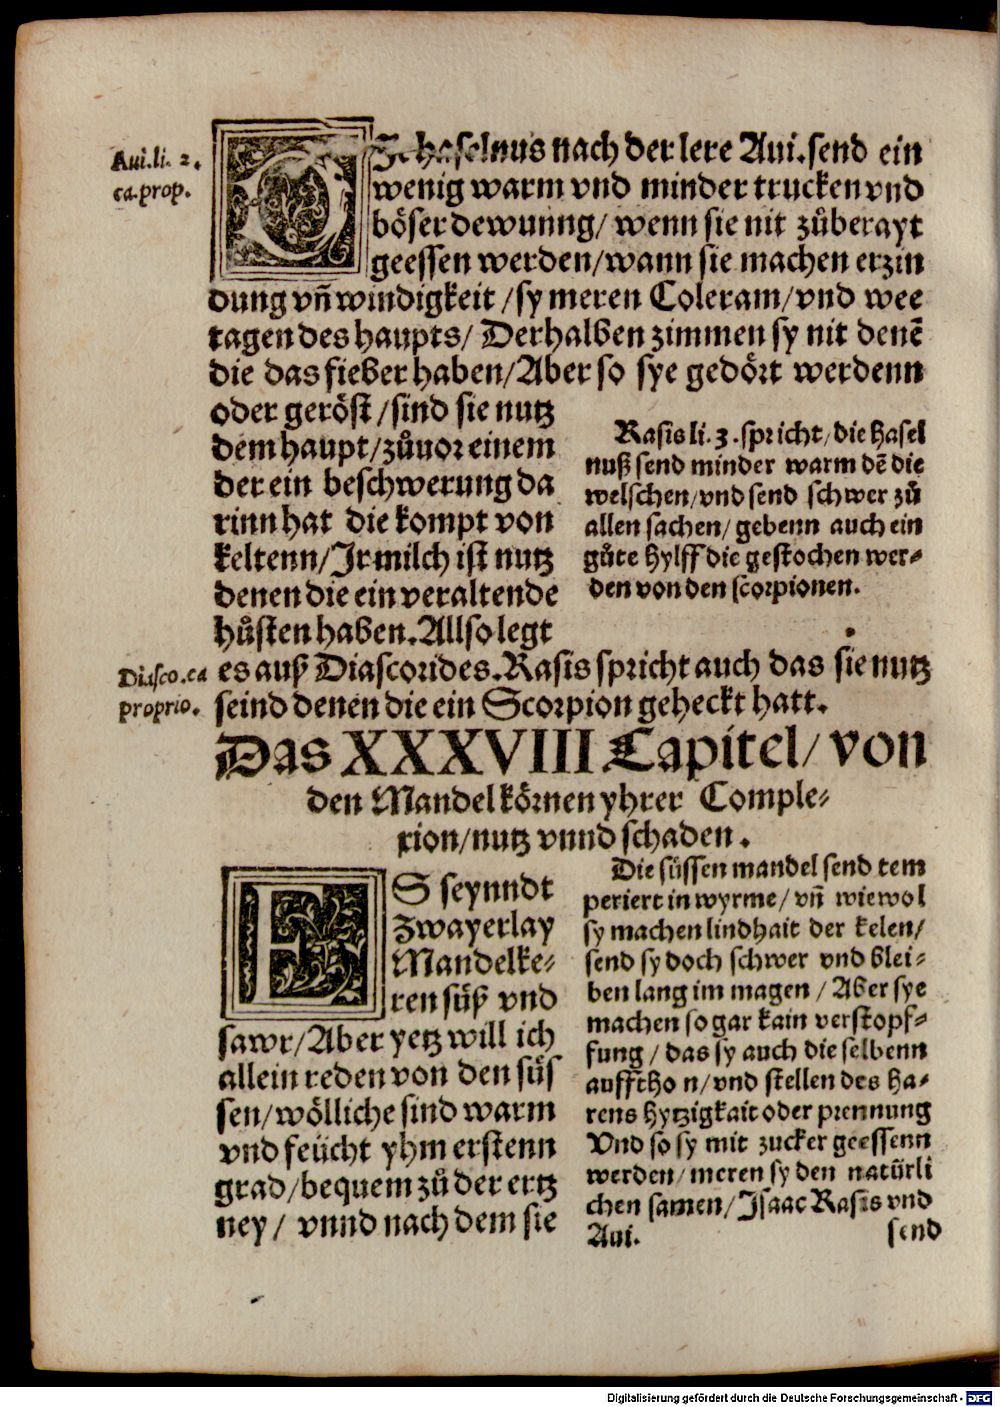 Aui.li. 2.
ca.prop.
DIe haselnus nach der lere Aui. send ein
wenig warm vnd minder trucken vnd
böser dewunng/ wenn sie nit zůberayt
geessen werden/wann sie machen erzin
dung vn̄ windigkeit /sy meren Coleram/vnd wee
tagen des haupts/ Derhalben zimmen sy nit denē
die das fieber haben/Aber so sye gedört werdenn
oder geröst /sind sie nutz
dem haupt/zůuor einem
der ein beschwerung da
rinn hat die kompt von
keltenn/Ir milch ist nutz
denen die ein veraltende
hůsten haben.Allso legt
Rasis li. 3. spricht/die Hasel
nuß send minder warm dē die
welschen/vnd send schwer zů
allen sachen/ gebenn auch ein
gůte hylff die gestochen wer⸗
den von den scorpionen.
Diasco.ca
proprio.
es auß Diascorides.Rasis spricht auch das sie nutz
seind denen die ein Scorpion geheckt hatt.
Das XXXVIII Capitel/ von
den Mandel körnen yhrer Comple⸗
xion/nutz vnnd schaden.
ES seynndt
Zwayerlay
Mandelke⸗
ren süß vnd
sawr/Aber yetz will ich
allein reden von den süs
sen/wölliche sind warm
vnd feücht yhm erstenn
grad/bequem zů der ertz
ney/ vnnd nach dem sie
Die süssen mandel send tem
periert in wyrme/ vn̄ wiewol
sy machen lindhait der kelen/
send sy doch schwer vnd blei⸗
ben lang im magen / Aber sye
machen so gar kain verstopf⸗
fung / das sy auch die selbenn
auffthon/vnd stellen des ha⸗
rens hytzigkait oder prennung
Vnd so sy mit zucker geessenn
werden/meren sy den natürli
chen samen/Isaac Rasis vnd
Aui.
send
Digitalisierung gefördert durch die Deutsche Forschungsgemeinschaft - DFG